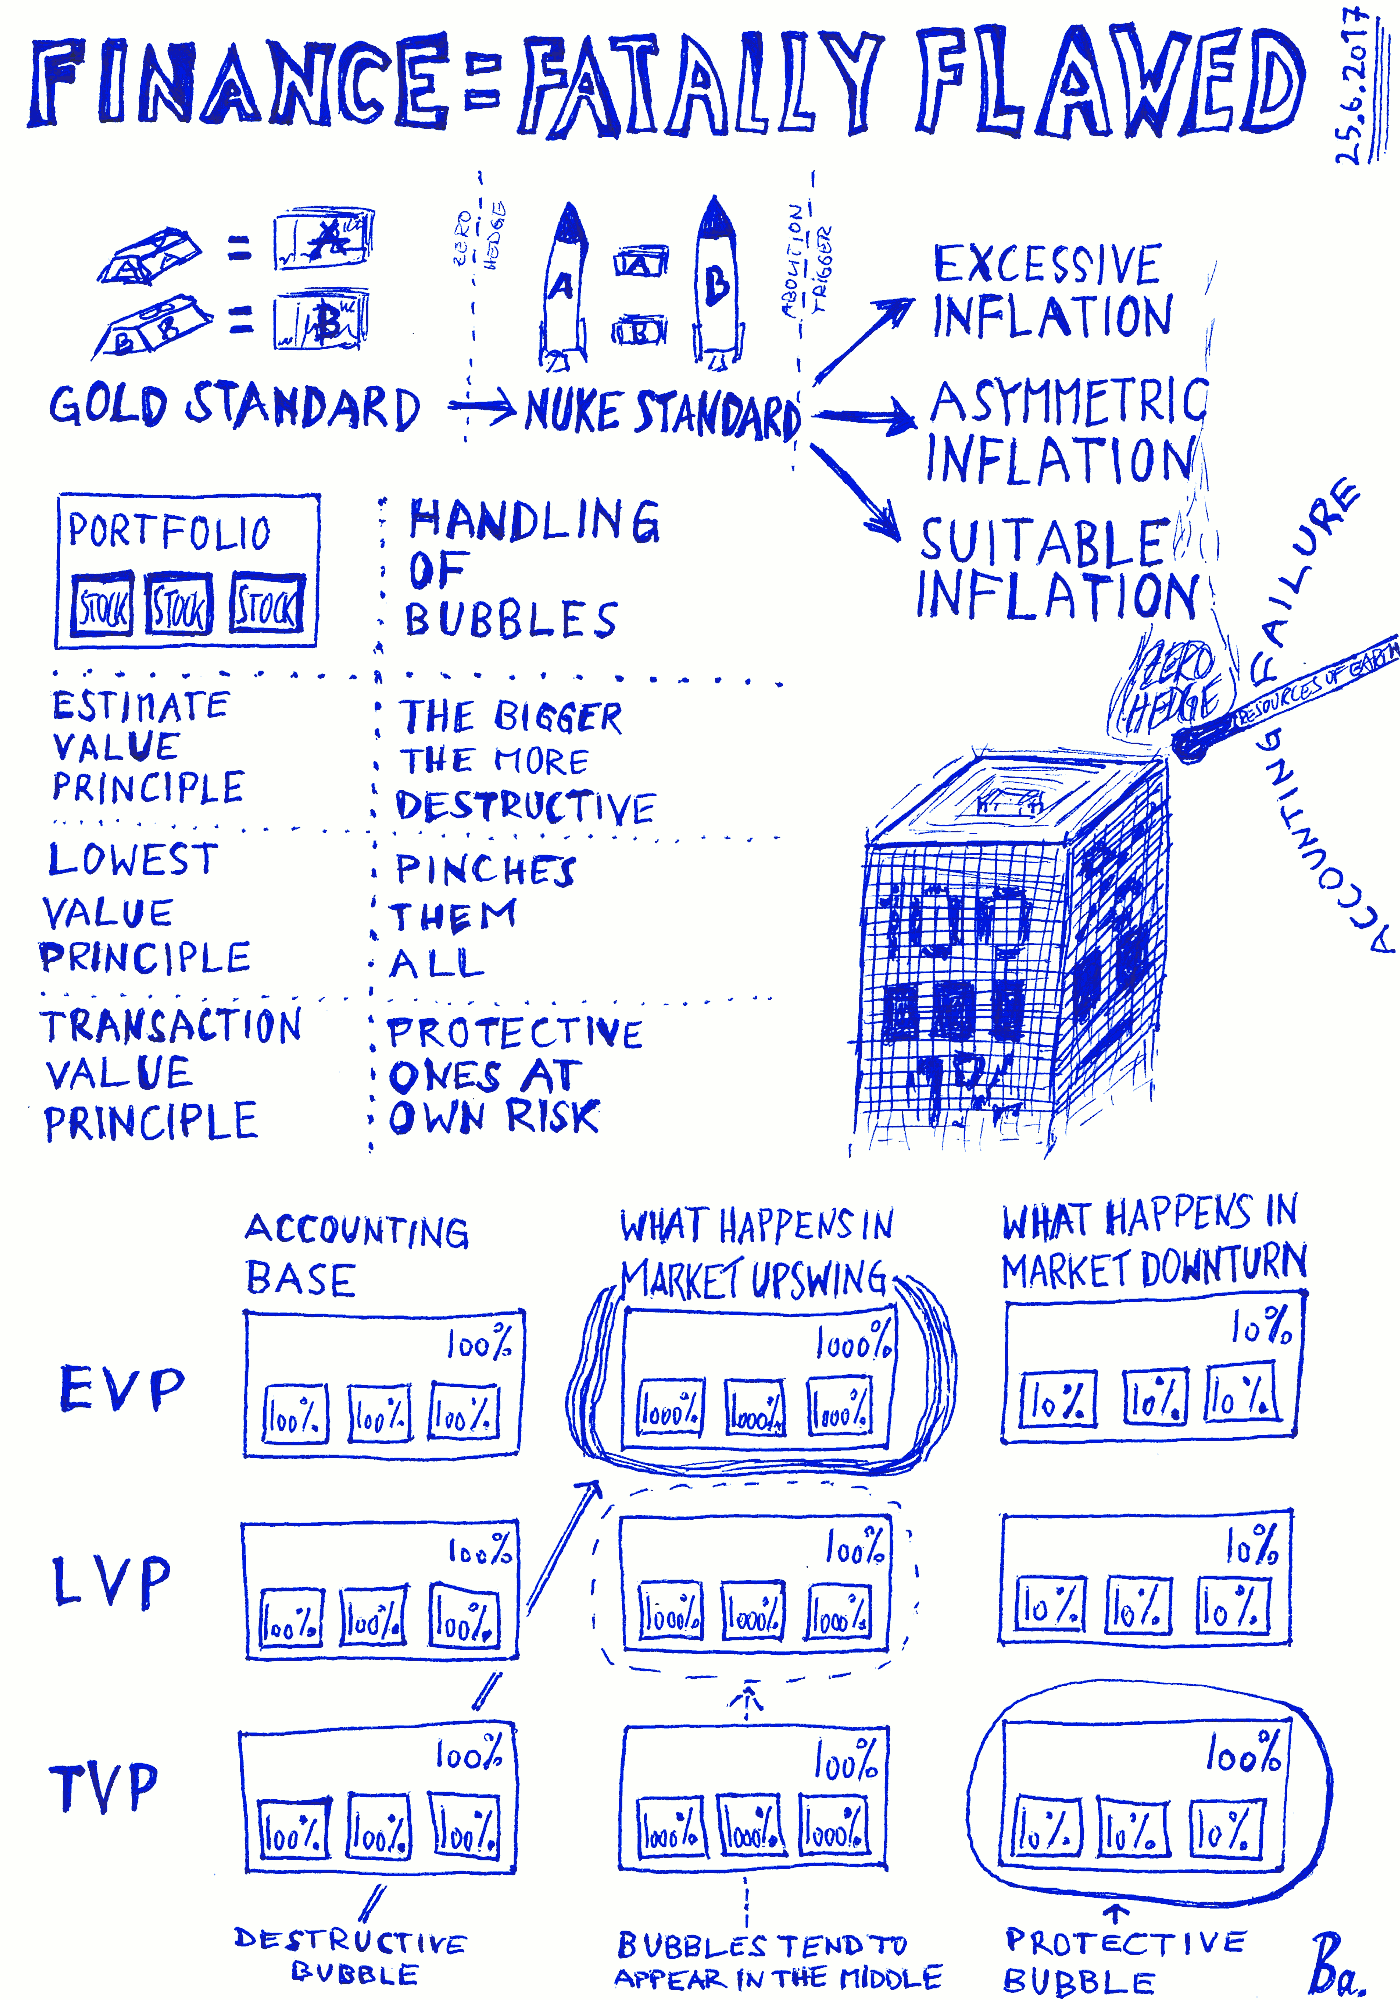 FINANCE=FATALLY FLAWED
25.6.2017
A = A
B = B
ZERO
HEDGE
A A B
B
ABOLITION
TRIGGER
GOLD STANDARD → NUKE STANDARD
EXCESSIVE
INFLATION
ASYMMETRIC
INFLATION
SUITABLE
INFLATION
PORTFOLIO
STOCK STOCK STOCK
HANDLING
OF
BUBBLES
ESTIMATE
VALUE
PRINCIPLE
THE BIGGER
THE MORE
DESTRUCTIVE
LOWEST
VALUE
PRINCIPLE
PINCHES
THEM
ALL
TRANSACTION
VALUE
PRINCIPLE
PROTECTIVE
ONES AT
OWN RISK
ZERO
HEDGE
RESOURCES OF EARTH
ACCOUNTING FAILURE
ACCOUNTING
BASE
WHAT HAPPENS IN
MARKET UPSWING
WHAT HAPPENS IN
MARKET DOWNTURN
EVP
100%
100% 100% 100%
1000%
1000% 1000% 1000%
10%
10% 10% 10%
LVP
100%
100% 100% 100%
100%
1000% 1000% 1000%
10%
10% 10% 10%
TVP
100%
100% 100% 100%
100%
1000% 1000% 1000%
100%
10% 10% 10%
DESTRUCTIVE
BUBBLE
BUBBLES TEND TO
APPEAR IN THE MIDDLE
PROTECTIVE
BUBBLE
Ba.